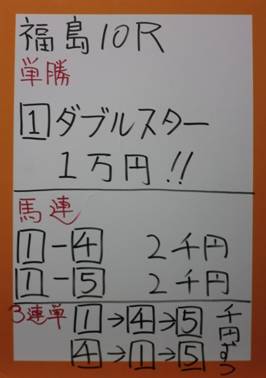 福島10R
単勝
1 ダブルスター
1万円!!
馬連
1-4 2千円
1-5 2千円
3連単 1→4→5 千円ずつ
4→1→5